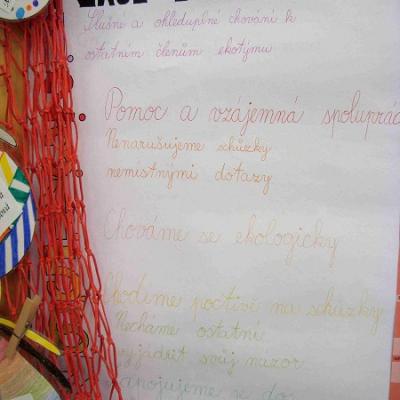 Slušné a ohleduplné chování k
ostatním členům ekotýmu
Pomoc a vzájemná spoluprác
Nenarušujeme schůzky
nemístnými dotazy
Chováme se ekologicky
Chodíme poctivě na schůzky
Necháme ostatní
vyjádřit svůj názor
Zapojujeme se do